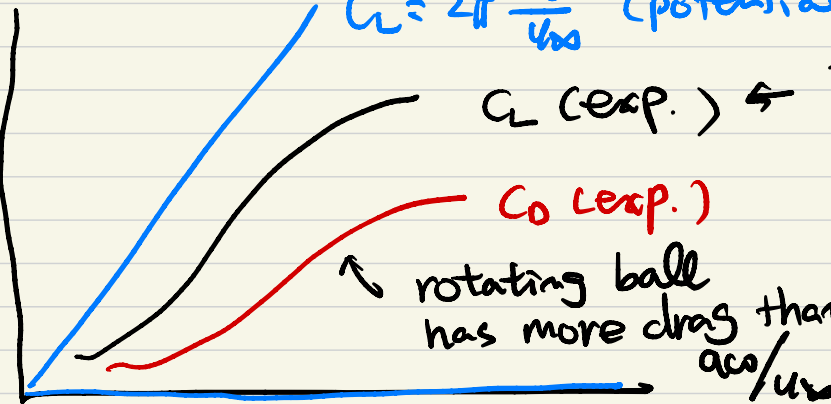 C_L = 2π — / U∞ (potential
C_L (exp.) ←
C_D (exp.)
rotating ball
has more drag than
aω/U∞